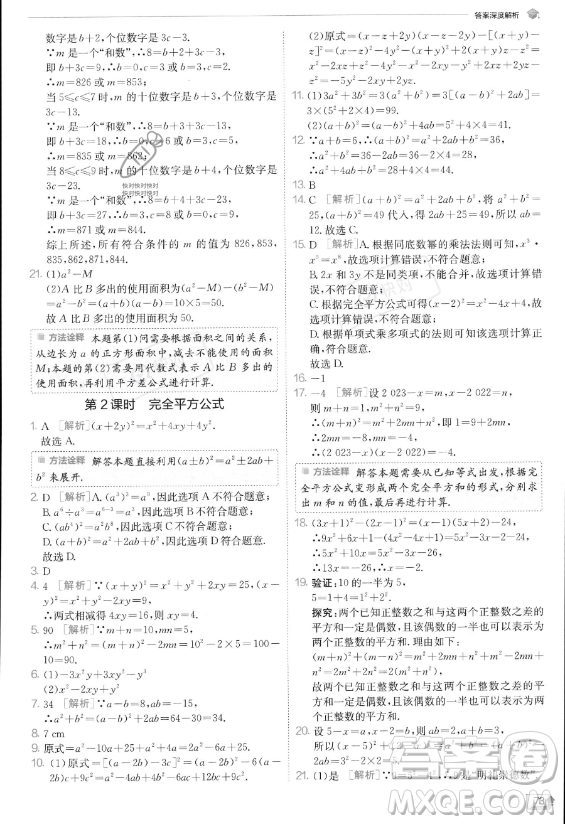 答案深度解析
数字是b+2,个位数字是3c-3.
∵m是一个“和数”,∴8=b+2+3c-3,
即b+3c=9,∴b=0,c=3或b=3,c=2,
∴m=826或m=853;
当5≤c≤7时,m的十位数字是b+3,个位数字是
3c-13.
∵m是一个“和数”,∴8=b+3+3c-13,
即b+3c=18,∴b=0,c=6或b=3,c=5,
∴m=835或m=862;
当8≤c≤9时,m的十位数字是b+4,个位数字是
3c-23.
∵m是一个“和数”,∴8=b+4+3c-23,
即b+3c=27,∴b=0,c=9或b=3,c=8,
∴m=844或m=871.
综上所述,所有符合条件的m的值为826,853,
835,862,844,871.
21. (1)a²-M
(2)A比B多出的使用面积为(a²-M)-(b²-M)
=a²-b²=(a+b)(a-b)=10×5=50.
故A比B多出的使用面积为50.
方法诠释 本题第(1)问需要根据面积之间的关系,
从边长为a的正方形面积中,减去不能使用的面积
M;本题第(2)问需要用代数式表示A比B多出的
使用面积,再利用平方差公式进行计算.
第2课时 完全平方公式
1. A [解析](x+2y)²=x²+4xy+4y².
故选A.
方法诠释 解答本题直接利用(a±b)²=a²±2ab+
b²来展开.
2. D [解析]A.(a⁴)²=a⁸,因此选项A不符合题意;
B.a⁶÷a²=a⁶⁻²=a⁴,因此选项B不符合题意;
D.
故选D.
3. D
4. 4 [解析]∵(x+y)²=x²+2xy+y²,
∴两式相减得4xy=16,则xy=4.
5. 90 [解析]∵m+n=10,mn=5,
∴m²+n²=(m+n)²-2mn=10²-2×5=100-
10=90.
6. (1)-3x²y+3xy²-y³
(2)x²-2xy
7. 34 [解析]∵a-b=8,ab=-15,
8. 7 cm
9. 原式=a²-10a+25+a²+4a=2a²-6a+25.
10. (1)原式=[(a-2b)-3c]²=(a-2b)²-2(a-
2b)·3c+(3c)²=a²-4ab+4b²-6ac+12bc+9c².
(2)原式=(x-z+2y)(x-z-2y)-[(x+y)-
z]²=(x-z)²-4y²-(x+y)²+2z(x+y)-z²=
x²-2xz+z²-4y²-x²-2xy-y²+2xz+2yz-
z²=-5y²-2xy+2yz.
11. (1)3a²+3b²=3(a²+b²)=3[(a-b)²+2ab]=
3×(5²+2×4)=99.
(2)(a+b)²=(a-b)²+4ab=5²+4×4=41.
12. ∵(a+b)²=a²+2ab+b²=36,ab=4,
∴a²+b²=(a+b)²-2ab=36-2×4=28,
∴a²+b²+4ab=28+4×4=44.
13. B
14. C [解析](a+b)²=a²+2ab+b²,将a²+b²=
25,(a+b)²=49代入,得2ab+25=49,所以ab=
12.故选C.
15. D [解析]A.根据同底数幂的乘法法则可知,x³·
x⁵=x⁸,故选项计算错误,不符合题意;
B.2x和x³不是同类项,不能合并,故选项计算错
误,不符合题意;
C.根据完全平方公式可得(x-2)²=x²-4x+4,
故选项计算错误,不符合题意;
D.根据单项式乘多项式的法则可知该选项计算
正确,符合题意.故选D.
16. -1
17. -4 [解析]设2 023-x=m,x-2 022=n,
则m+n=1,m²+n²=9.
∵(m+n)²=m²+2mn+n²,
∴1=9+2mn,∴mn=-4,
∴(2 023-x)(x-2 022)=-4.
方法诠释 解答本题需要从已知等式出发,根据完
全平方公式变形成两个完全平方和的形式,分别求
出m和n的值,最后再进行计算.
18. (3x+1)²-(2x-1)²=5(x-2)(x+2)-24,
∴9x²+6x+1-(4x²-4x+1)=5(x²-4)-24,
∴5x²+10x=5x²-3x-26,
∴13x=-26,∴x=-2.
19. 验证:10的一半为5,
5=1+4=1²+2².
探究:两个已知正整数之和与这两个正整数之差的
平方和一定是偶数,该偶数的一半也可以表示为两
个正整数的平方和.理由如下:
(m+n)²+(m-n)²=m²+2mn+n²+m²-
2mn+n²=2m²+2n²=2(m²+n²),
故两个已知正整数之和与这两个正整数之差的平
方和一定是偶数,该偶数的一半也可以表示为两个
正整数的平方和.
20. 设5-x=a,x-2=b,则ab=2,a+b=3,
所以(5-x)²+(x-2)²=a²+b²=(a+b)²-
21. (1)是